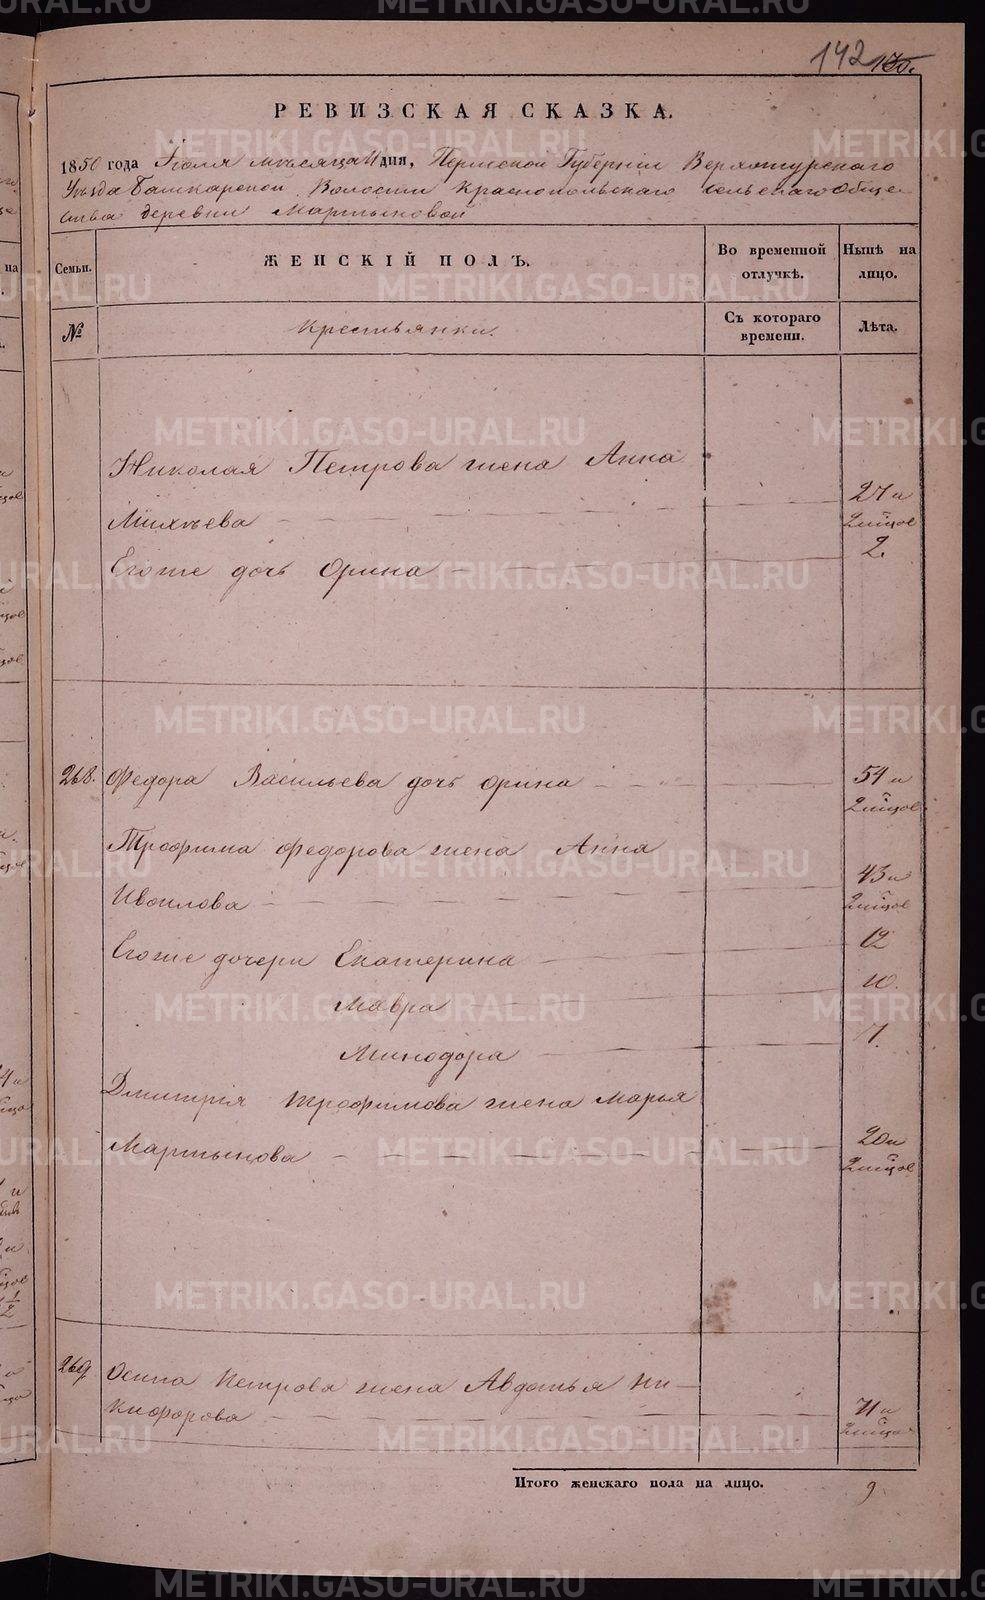 142
РЕВИЗСКАЯ СКАЗКА.
1850 года Июля месяца 11 дня, Пермской Губернии Верхотурскаго
Уезда Башкарской Волости Краснопольскаго сельскаго Обще
ства деревни Мартыновой
Семьи.
ЖЕНСКІЙ ПОЛЪ.
Во временной отлучкѣ.
Нынѣ на лицо.
№
Крестьянки.
Съ котораго времени.
Лѣта.
Николая Петрова жена Анна
Михѣева 27 и 2 мѣсяц
Егоже дочь Орина 2.
268. Федора Васильева дочь Орина 54 и
Трофима Федорова жена Анна
Ивоилова 43 и
Егоже дочери Екатерина 12
Мавра 10.
Минодора 7.
Дмитрія Трофимова жена Марья
Мартынова 20 и
269 Осипа Петрова жена Авдотья Ни-
кифорова 71 и
Итого женскаго пола на лицо. 9
METRIKI.GASO-URAL.RU